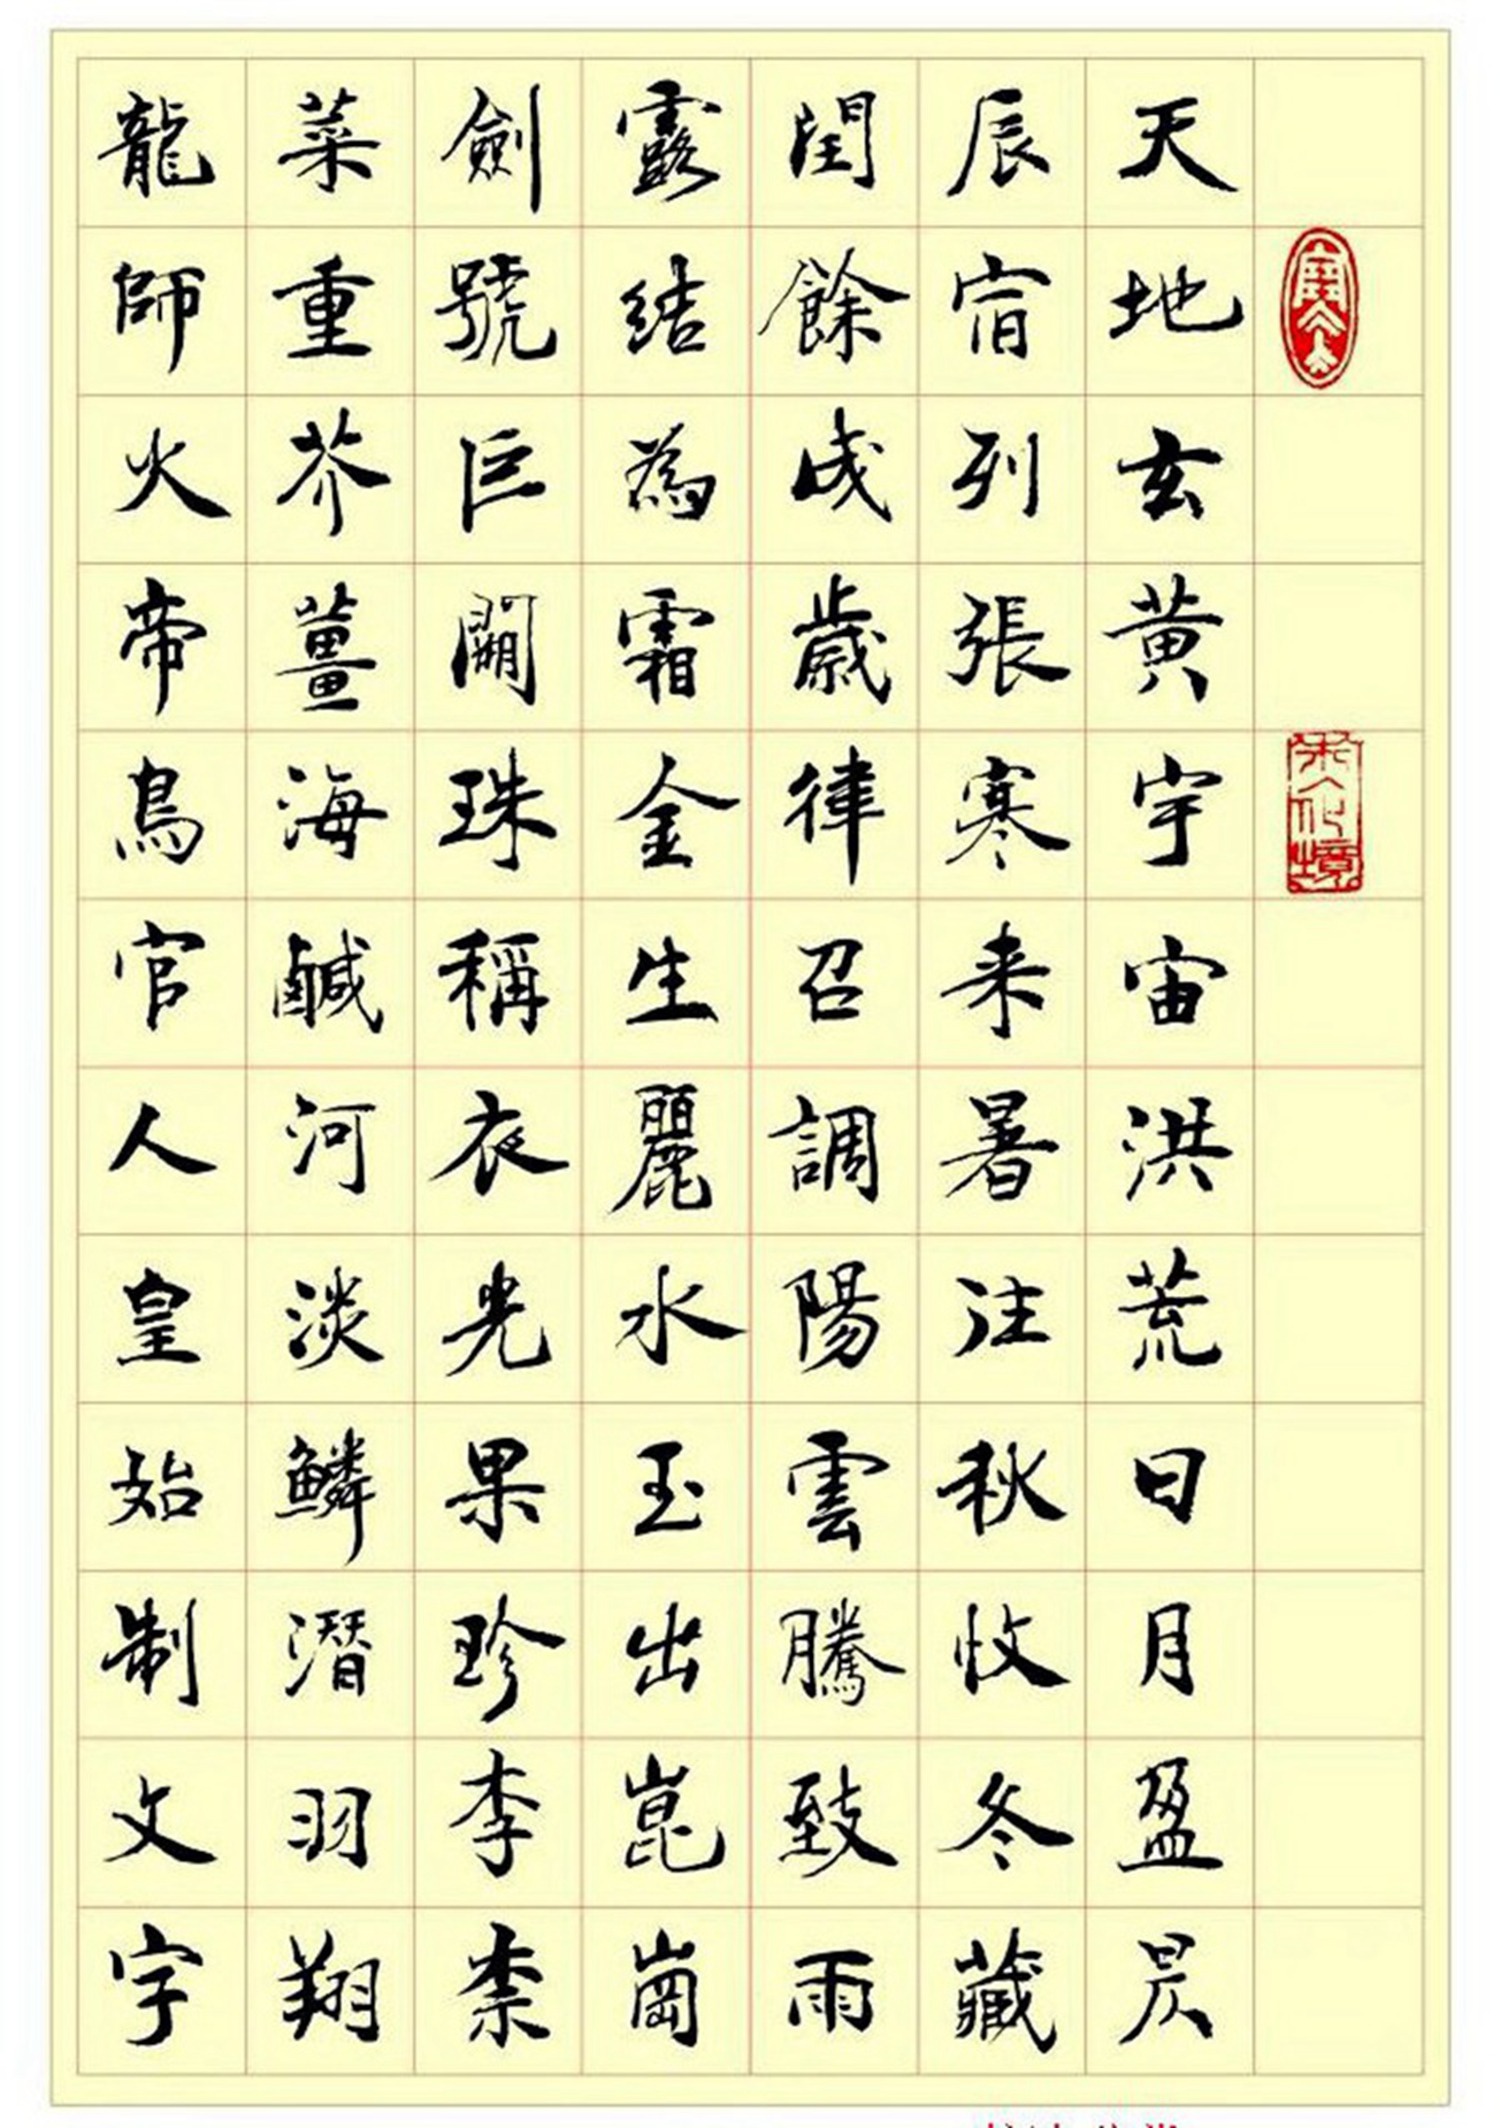 天地玄黃宇宙洪荒日月盈昃
辰宿列張寒来暑往秋收冬藏
閏餘成歲律召調陽雲騰致雨
露結為霜金生麗水玉出崑崗
劍號巨闕珠稱夜光果珍李柰
菜重芥薑海鹹河淡鱗潛羽翔
龍師火帝鳥官人皇始制文字